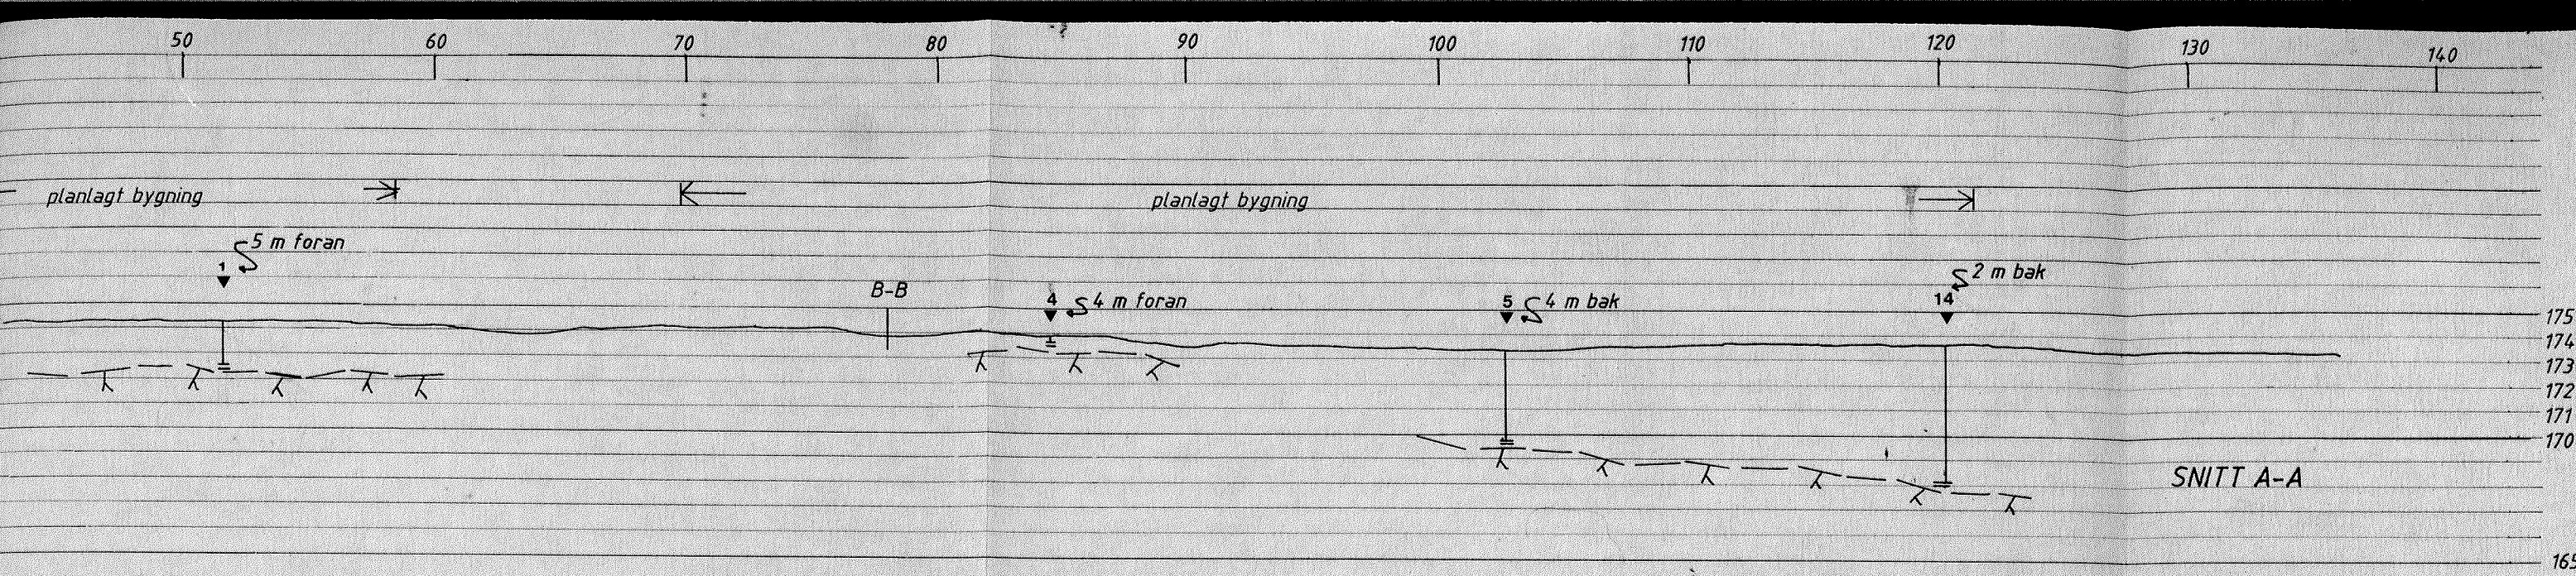 50 60 70 80 90 100 110 120 130 140
planlagt bygning planlagt bygning
5 m foran
1
2 m bak
B-B
4 4 m foran
5 4 m bak
14
175
174
173
172
171
170
SNITT A-A
165